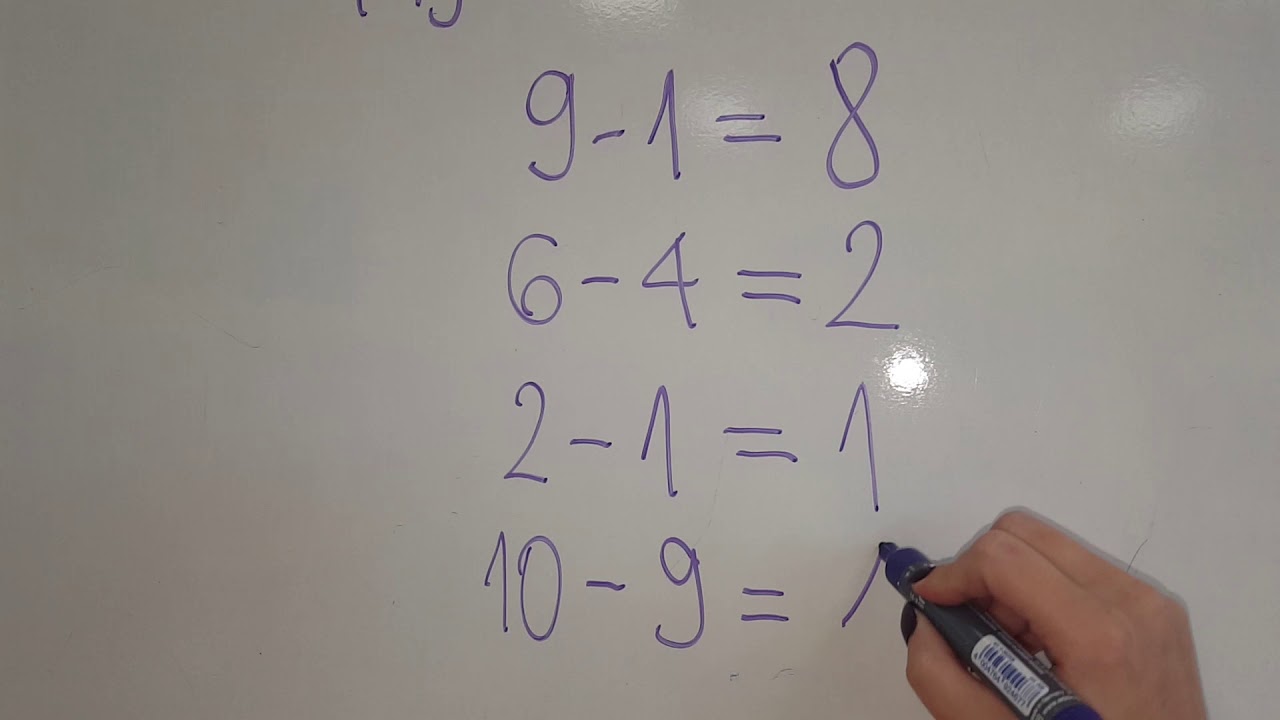 9 - 1 = 8
6 - 4 = 2
2 - 1 = 1
10 - 9 =